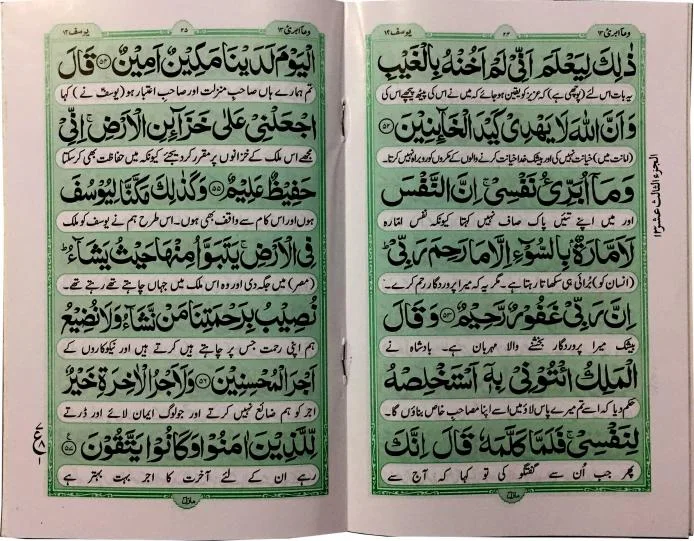 وما ابرئ ١٣
٢٤
يوسف ١٢
ذٰلِكَ لِيَعْلَمَ اَنِّىْ لَمْ اَخُنْهُ بِالْغَيْبِ
یہ بات اس لئے (پوچھی ہے) کہ عزیز کو یقین ہو جائے کہ میں نے اس کی پیٹھ پیچھے اس کی
وَاَنَّ اللّٰهَ لَا يَهْدِىْ كَيْدَ الْخَآئِنِيْنَ ۝٥٢
(امانت میں) خیانت نہیں کی اور بیشک خدا خیانت کرنے والوں کے مکروں کو روبراہ نہیں کرتا۔
وَمَآ اُبَرِّئُ نَفْسِىْ ۚ اِنَّ النَّفْسَ
اور میں اپنے تئیں پاک صاف نہیں کہتا کیونکہ نفس امّارہ
لَاَمَّارَةٌۢ بِالسُّوْٓءِ اِلَّا مَا رَحِمَ رَبِّىْ ؕ
(انسان کو) بُرائی ہی سکھاتا رہتا ہے۔ مگر یہ کہ میرا پروردگار رحم کرے۔
اِنَّ رَبِّىْ غَفُوْرٌ رَّحِيْمٌ ۝٥٣ وَقَالَ
بیشک میرا پروردگار بخشنے والا مہربان ہے۔ بادشاہ نے
الْمَلِكُ ائْتُوْنِىْ بِهٖٓ اَسْتَخْلِصْهُ
حکم دیا کہ اسے تم میرے پاس لاؤ میں اسے اپنا مصاحب خاص بناؤں گا۔
لِنَفْسِىْ ۚ فَلَمَّا كَلَّمَهٗ قَالَ اِنَّكَ
پھر جب اُن سے گفتگو کی تو کہا کہ آج سے
منزل ٣
الجزء الثالث عشر ١٣
وما ابرئ ١٣
٢٥
يوسف ١٢
الْيَوْمَ لَدَيْنَا مَكِيْنٌ اَمِيْنٌ ۝٥٤ قَالَ
تم ہمارے ہاں صاحبِ منزلت اور صاحبِ اعتبار ہو (یوسف نے) کہا
اجْعَلْنِىْ عَلٰى خَزَآئِنِ الْاَرْضِ ۚ اِنِّىْ
مجھے اس ملک کے خزانوں پر مقرر کر دیجئے کیونکہ میں حفاظت بھی کر سکتا
حَفِيْظٌ عَلِيْمٌ ۝٥٥ وَكَذٰلِكَ مَكَّنَّا لِيُوْسُفَ
ہوں اور اس کام سے واقف بھی ہوں۔ اس طرح ہم نے یوسف کو ملک
فِى الْاَرْضِ ۚ يَتَبَوَّاُ مِنْهَا حَيْثُ يَشَآءُ ؕ
(مصر) میں جگہ دی اور وہ اس ملک میں جہاں چاہتے تھے رہتے تھے۔
نُصِيْبُ بِرَحْمَتِنَا مَنْ نَّشَآءُ وَلَا نُضِيْعُ
ہم اپنی رحمت جس پر چاہتے ہیں کرتے ہیں اور نیکوکاروں کے
اَجْرَ الْمُحْسِنِيْنَ ۝٥٦ وَلَاَجْرُ الْاٰخِرَةِ خَيْرٌ
اجر کو ہم ضائع نہیں کرتے اور جو لوگ ایمان لائے اور ڈرتے
لِّلَّذِيْنَ اٰمَنُوْا وَكَانُوْا يَتَّقُوْنَ ۝٥٧ ع
رہے ان کے لئے آخرت کا اجر بہت بہتر ہے
منزل ٣